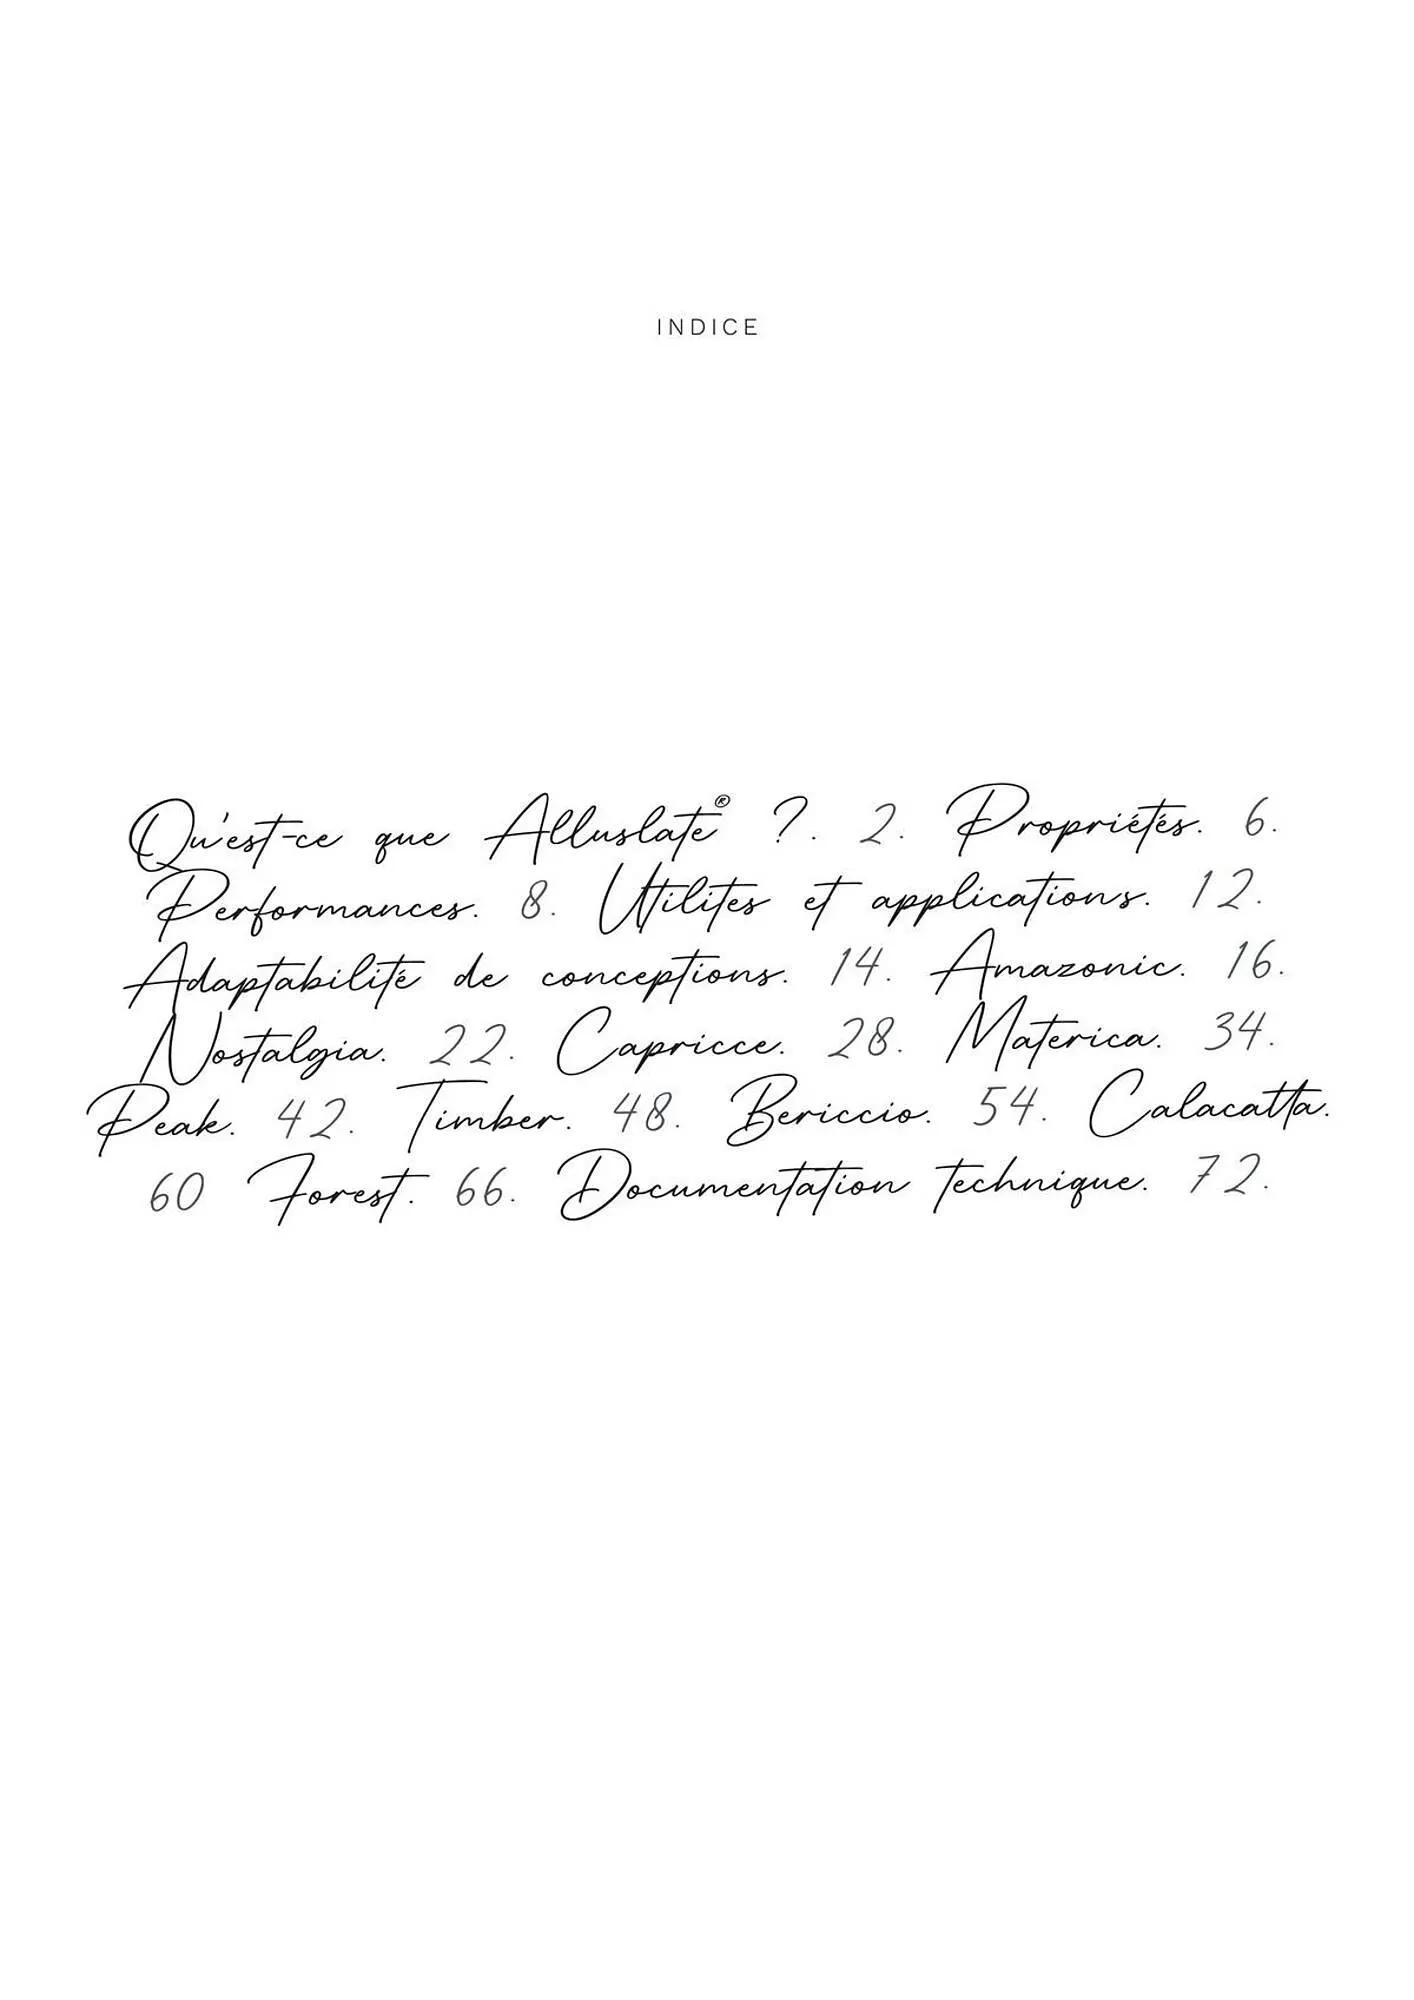 INDICE
Qu'est-ce que Alluslate® ?. 2. Propriétés. 6.
Performances. 8. Utilites et applications. 12.
Adaptabilité de conceptions. 14. Amazonic. 16.
Nostalgia. 22. Capricce. 28. Materica. 34.
Peak. 42. Timber. 48. Bericcio. 54. Calacatta.
60 Forest. 66. Documentation technique. 72.